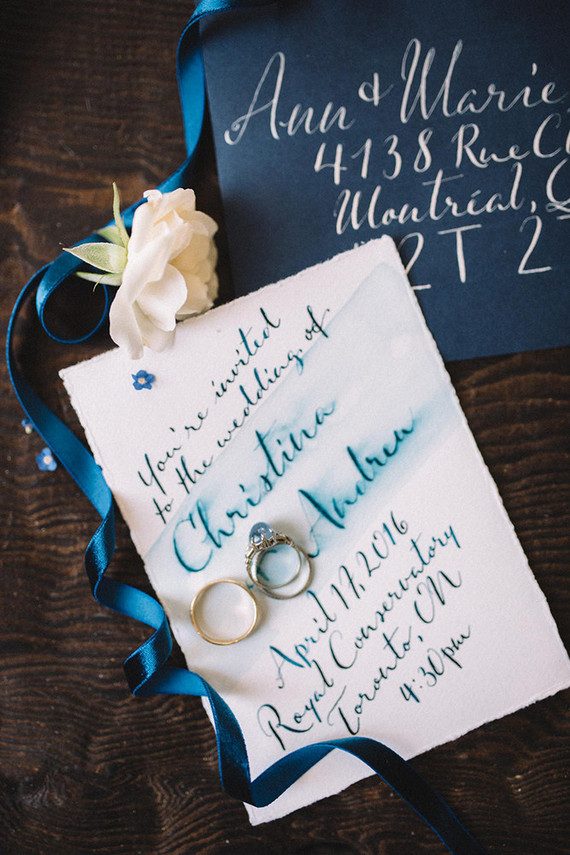 Ann & Marie
4138 Rue
Montréal,
2T 2
You're invited
to the wedding of
Christina
Andrew
April 17, 2016
Royal Conservatory
Toronto, ON
4:30pm